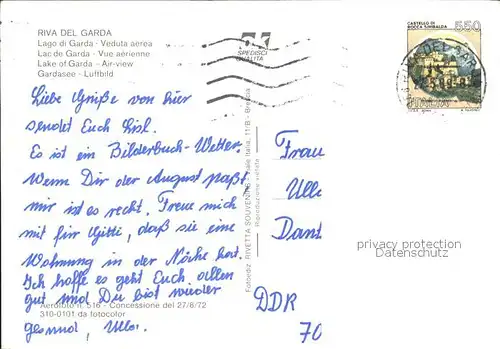 RIVA DEL GARDA
Lago di Garda - Veduta aerea
Lac de Garde - Vue aérienne
Lake of Garda - Air-view
Gardasee - Luftbild
SPEDISCI
QUALITÀ
CASTELLO DI
ROCCA SINIBALDA
550
ITALIA
Liebe Grüße von hier
sendet Euch Lisl.
Es ist ein Bilderbuch-Wetter.
Wenn Dir der August paßt
mir ist es recht. Freue mich
mit für Gitti, daß sie eine
Wohnung in der Nähe hat.
Ich hoffe es geht Euch allen
gut und Du bist wieder
gesund, Ulla.
Aerofoto n. 516 - Concessione del 27/8/72
310-0101 da fotocolor
Fotoediz. RIVETTA SOUVENIRS - Viale Italia, 11/B - Brescia
Riproduzione vietata
Frau
Ulle
Dant
DDR
70
privacy protection
Datenschutz